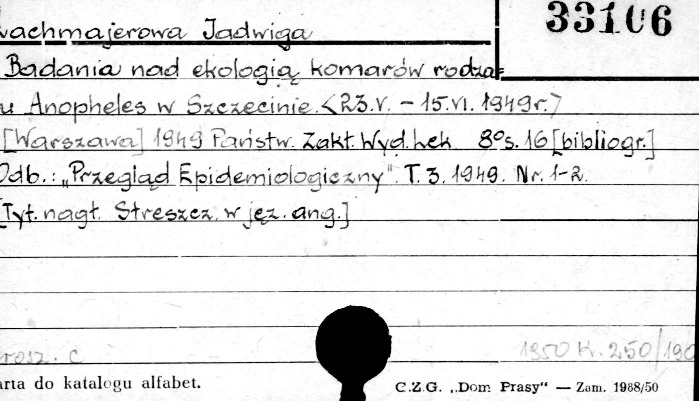 33106
Lachmajerowa Jadwiga
Badania nad ekologią komarów rodza=
u Anopheles w Szczecinie. <23.V. - 15.VI. 1949r.>
[Warszawa] 1949 Państw. Zakł. Wyd. Lek 8° s. 16 [bibliogr.]
Odb.: „Przegląd Epidemiologiczny". T. 3. 1949. Nr. 1-2.
[Tyt. nagł. Streszcz. w jęz. ang.]
brosz. c
1950 K. 250/190
arta do katalogu alfabet.
C.Z.G. „Dom Prasy" — Zam. 1988/50